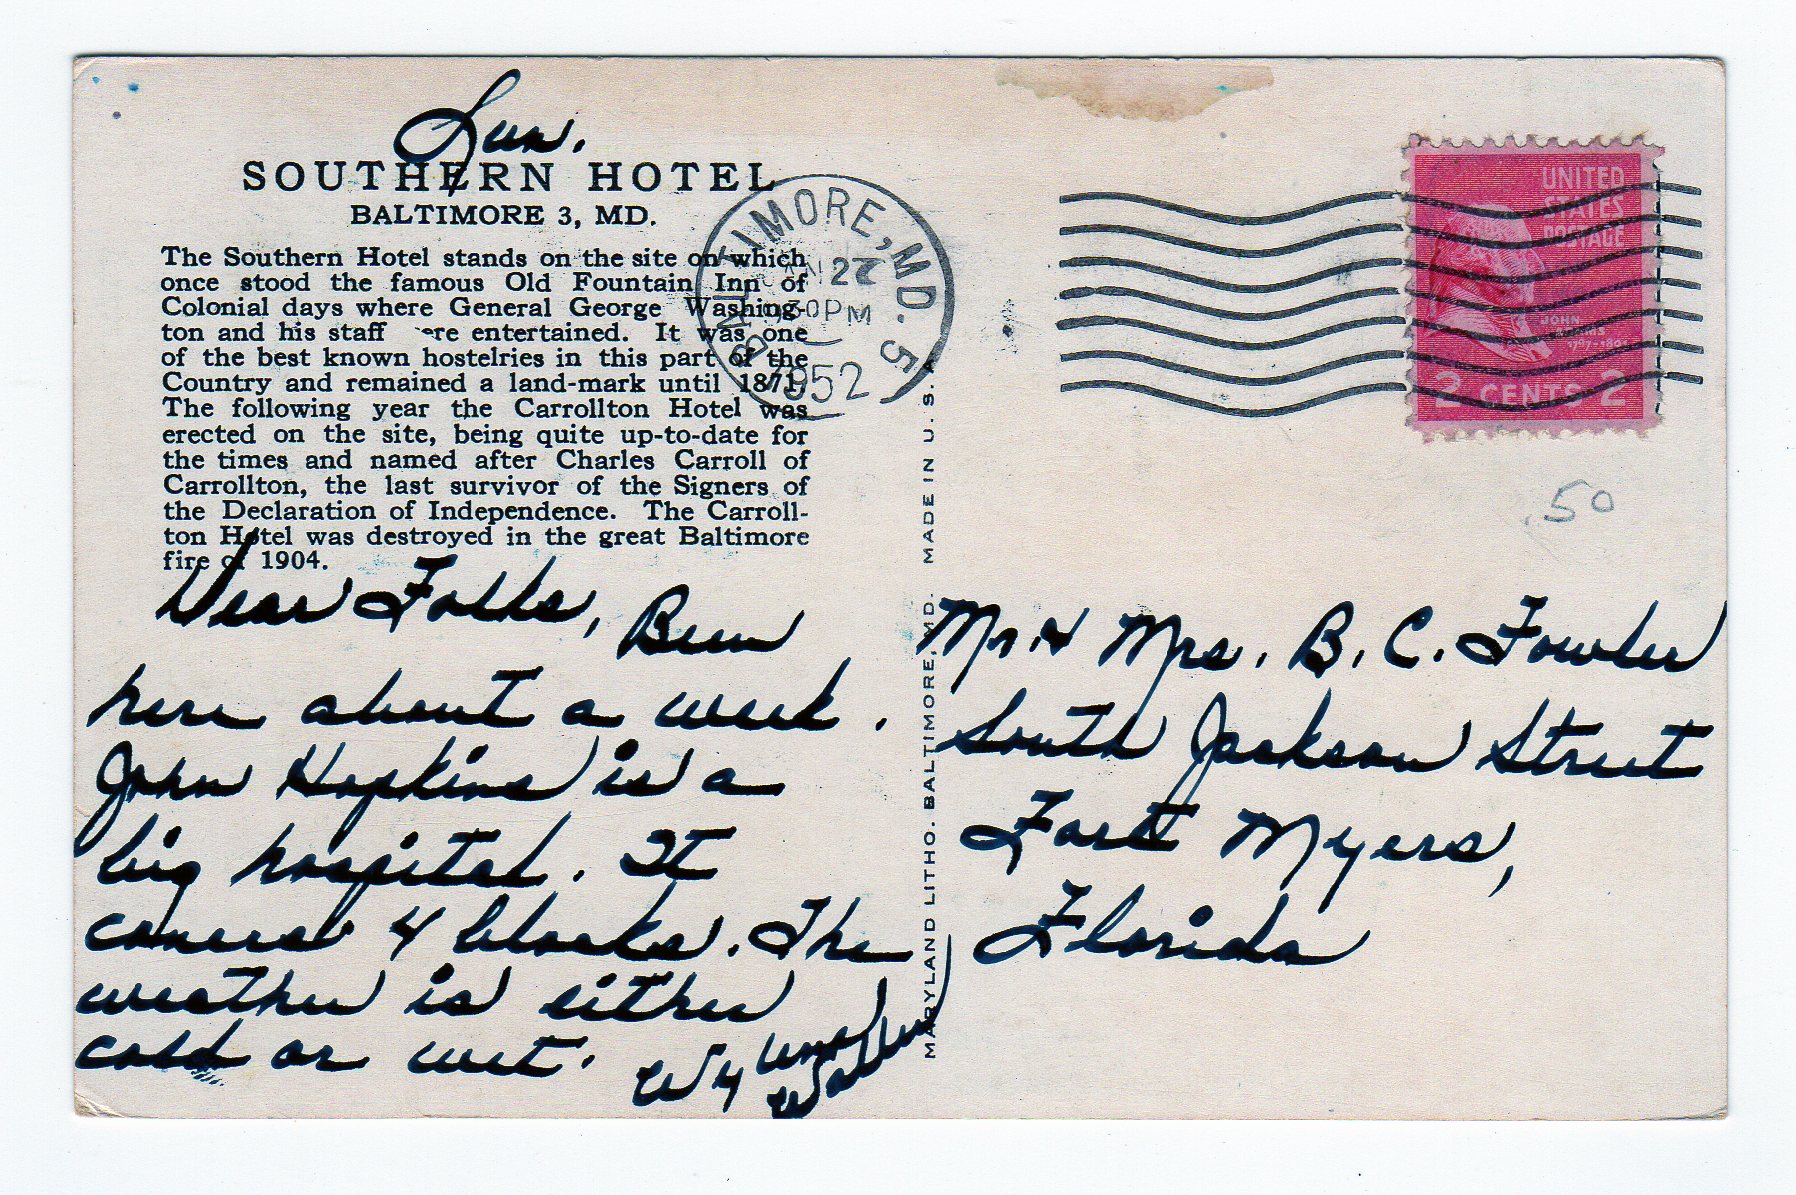 Sun.
SOUTHERN HOTEL
BALTIMORE 3, MD.
The Southern Hotel stands on the site on which
once stood the famous Old Fountain Inn of
Colonial days where General George Washing-
ton and his staff ere entertained. It was one
of the best known hostelries in this part of the
Country and remained a land-mark until 1871.
The following year the Carrollton Hotel was
erected on the site, being quite up-to-date for
the times and named after Charles Carroll of
Carrollton, the last survivor of the Signers of
the Declaration of Independence. The Carroll-
ton Hotel was destroyed in the great Baltimore
fire of 1904.
Dear Folks, Been
here about a week.
John Hopkins is a
big hospital. It
covers 4 blocks. The
weather is either
cold or wet.
BALTIMORE, MD. 5
JAN 27
30 PM
1952
MARYLAND LITHO. BALTIMORE, MD. MADE IN U. S. A
UNITED
STATES
POSTAGE
JOHN
ADAMS
2 CENTS 2
.50
Mr. & Mrs. B. C. Fowler
South Jackson Street
Fort Myers,
Florida